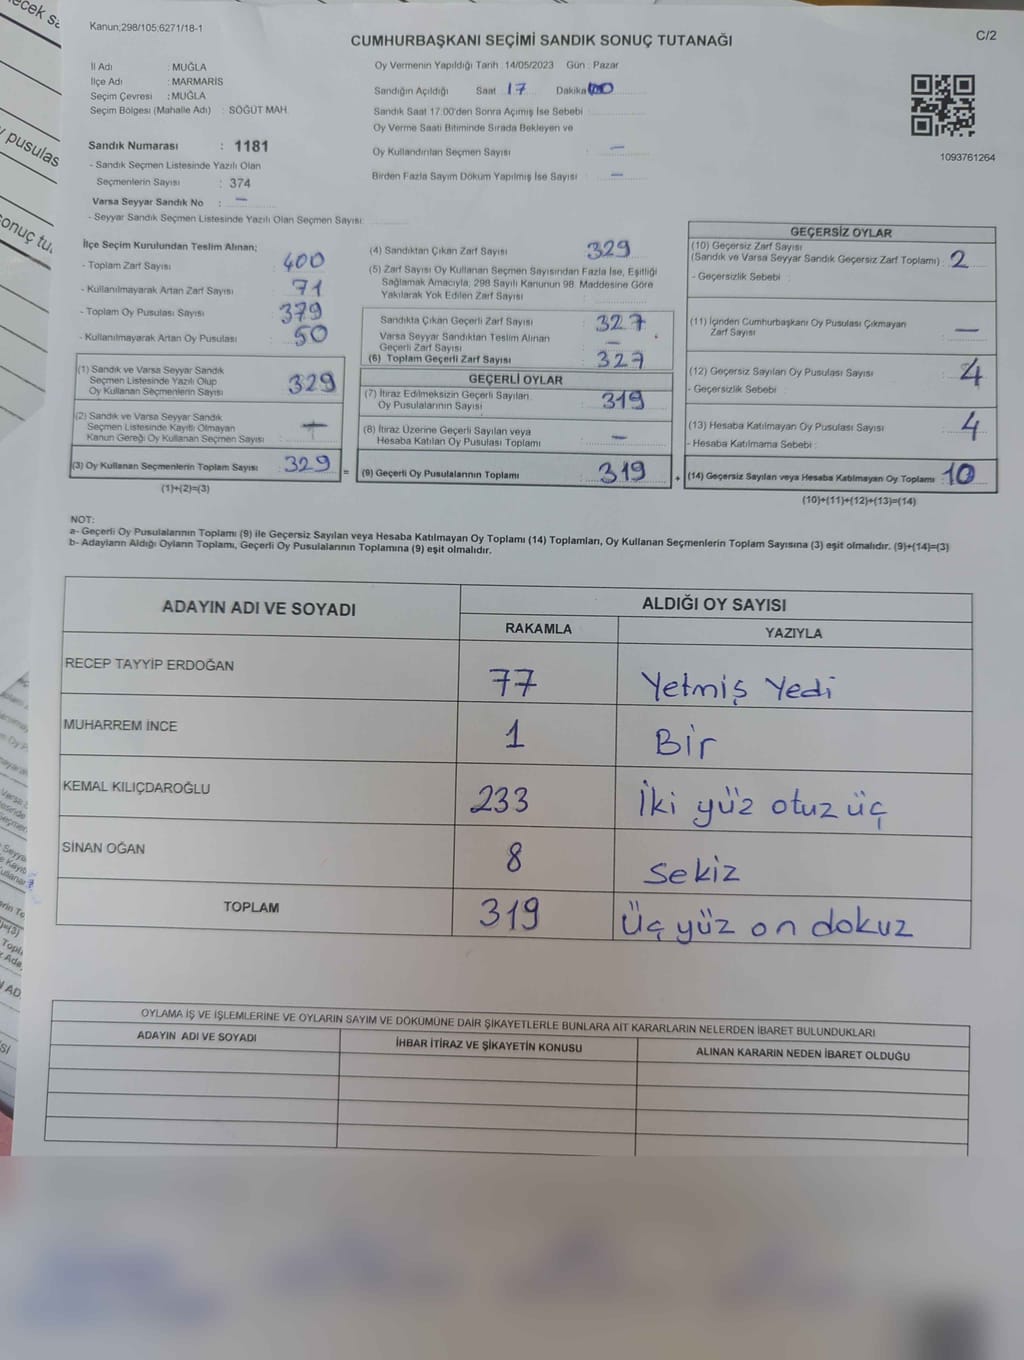 Kanun;298/105;6271/18-1
CUMHURBAŞKANI SEÇİMİ SANDIK SONUÇ TUTANAĞI
C/2
İl Adı : MUĞLA
İlçe Adı : MARMARİS
Seçim Çevresi : MUĞLA
Seçim Bölgesi (Mahalle Adı) : SÖĞÜT MAH.
Sandık Numarası : 1181
- Sandık Seçmen Listesinde Yazılı Olan
Seçmenlerin Sayısı : 374
Varsa Seyyar Sandık No : —
- Seyyar Sandık Seçmen Listesinde Yazılı Olan Seçmen Sayısı:
Oy Vermenin Yapıldığı Tarih : 14/05/2023 Gün : Pazar
Sandığın Açıldığı Saat 17 Dakika 00
Sandık Saat 17:00'den Sonra Açımış İse Sebebi
Oy Verme Saati Bitiminde Sırada Bekleyen ve
Oy Kullandırılan Seçmen Sayısı : —
Birden Fazla Sayım Döküm Yapılmış İse Sayısı : —
1093761264
İlçe Seçim Kurulundan Teslim Alınan;
- Toplam Zarf Sayısı : 400
- Kullanılmayarak Artan Zarf Sayısı : 71
- Toplam Oy Pusulası Sayısı : 379
- Kullanılmayarak Artan Oy Pusulası : 50
(1) Sandık ve Varsa Seyyar Sandık
Seçmen Listesinde Yazılı Olup
Oy Kullanan Seçmenlerin Sayısı : 329
(2) Sandık ve Varsa Seyyar Sandık
Seçmen Listesinde Kayıtlı Olmayan
Kanun Gereği Oy Kullanan Seçmen Sayısı :
(3) Oy Kullanan Seçmenlerin Toplam Sayısı : 329
(1)+(2)=(3)
(4) Sandıktan Çıkan Zarf Sayısı : 329
(5) Zarf Sayısı Oy Kullanan Seçmen Sayısından Fazla İse, Eşitliği
Sağlamak Amacıyla; 298 Sayılı Kanunun 98. Maddesine Göre
Yakılarak Yok Edilen Zarf Sayısı :
Sandıkta Çıkan Geçerli Zarf Sayısı : 327
Varsa Seyyar Sandıktan Teslim Alınan
Geçerli Zarf Sayısı : —
(6) Toplam Geçerli Zarf Sayısı : 327
GEÇERLİ OYLAR
(7) İtiraz Edilmeksizin Geçerli Sayılan
Oy Pusulalarının Sayısı : 319
(8) İtiraz Üzerine Geçerli Sayılan veya
Hesaba Katılan Oy Pusulası Toplamı : —
= (9) Geçerli Oy Pusulalarının Toplamı : 319
GEÇERSİZ OYLAR
(10) Geçersiz Zarf Sayısı
(Sandık ve Varsa Seyyar Sandık Geçersiz Zarf Toplamı) : 2
- Geçersizlik Sebebi :
(11) İçinden Cumhurbaşkanı Oy Pusulası Çıkmayan
Zarf Sayısı : —
(12) Geçersiz Sayılan Oy Pusulası Sayısı : 4
- Geçersizlik Sebebi :
(13) Hesaba Katılmayan Oy Pusulası Sayısı : 4
- Hesaba Katılmama Sebebi :
+ (14) Geçersiz Sayılan veya Hesaba Katılmayan Oy Toplamı : 10
(10)+(11)+(12)+(13)=(14)
NOT:
a- Geçerli Oy Pusulalarının Toplamı (9) ile Geçersiz Sayılan veya Hesaba Katılmayan Oy Toplamı (14) Toplamları, Oy Kullanan Seçmenlerin Toplam Sayısına (3) eşit olmalıdır. (9)+(14)=(3)
b- Adayların Aldığı Oyların Toplamı, Geçerli Oy Pusulalarının Toplamına (9) eşit olmalıdır.
ADAYIN ADI VE SOYADI
ALDIĞI OY SAYISI
RAKAMLA YAZIYLA
RECEP TAYYİP ERDOĞAN 77 Yetmiş Yedi
MUHARREM İNCE 1 Bir
KEMAL KILIÇDAROĞLU 233 İki yüz otuz üç
SİNAN OĞAN 8 Sekiz
TOPLAM 319 Üç yüz on dokuz
OYLAMA İŞ VE İŞLEMLERİNE VE OYLARIN SAYIM VE DÖKÜMÜNE DAİR ŞİKAYETLERLE BUNLARA AİT KARARLARIN NELERDEN İBARET BULUNDUKLARI
ADAYIN ADI VE SOYADI İHBAR İTİRAZ VE ŞİKAYETİN KONUSU ALINAN KARARIN NEDEN İBARET OLDUĞU